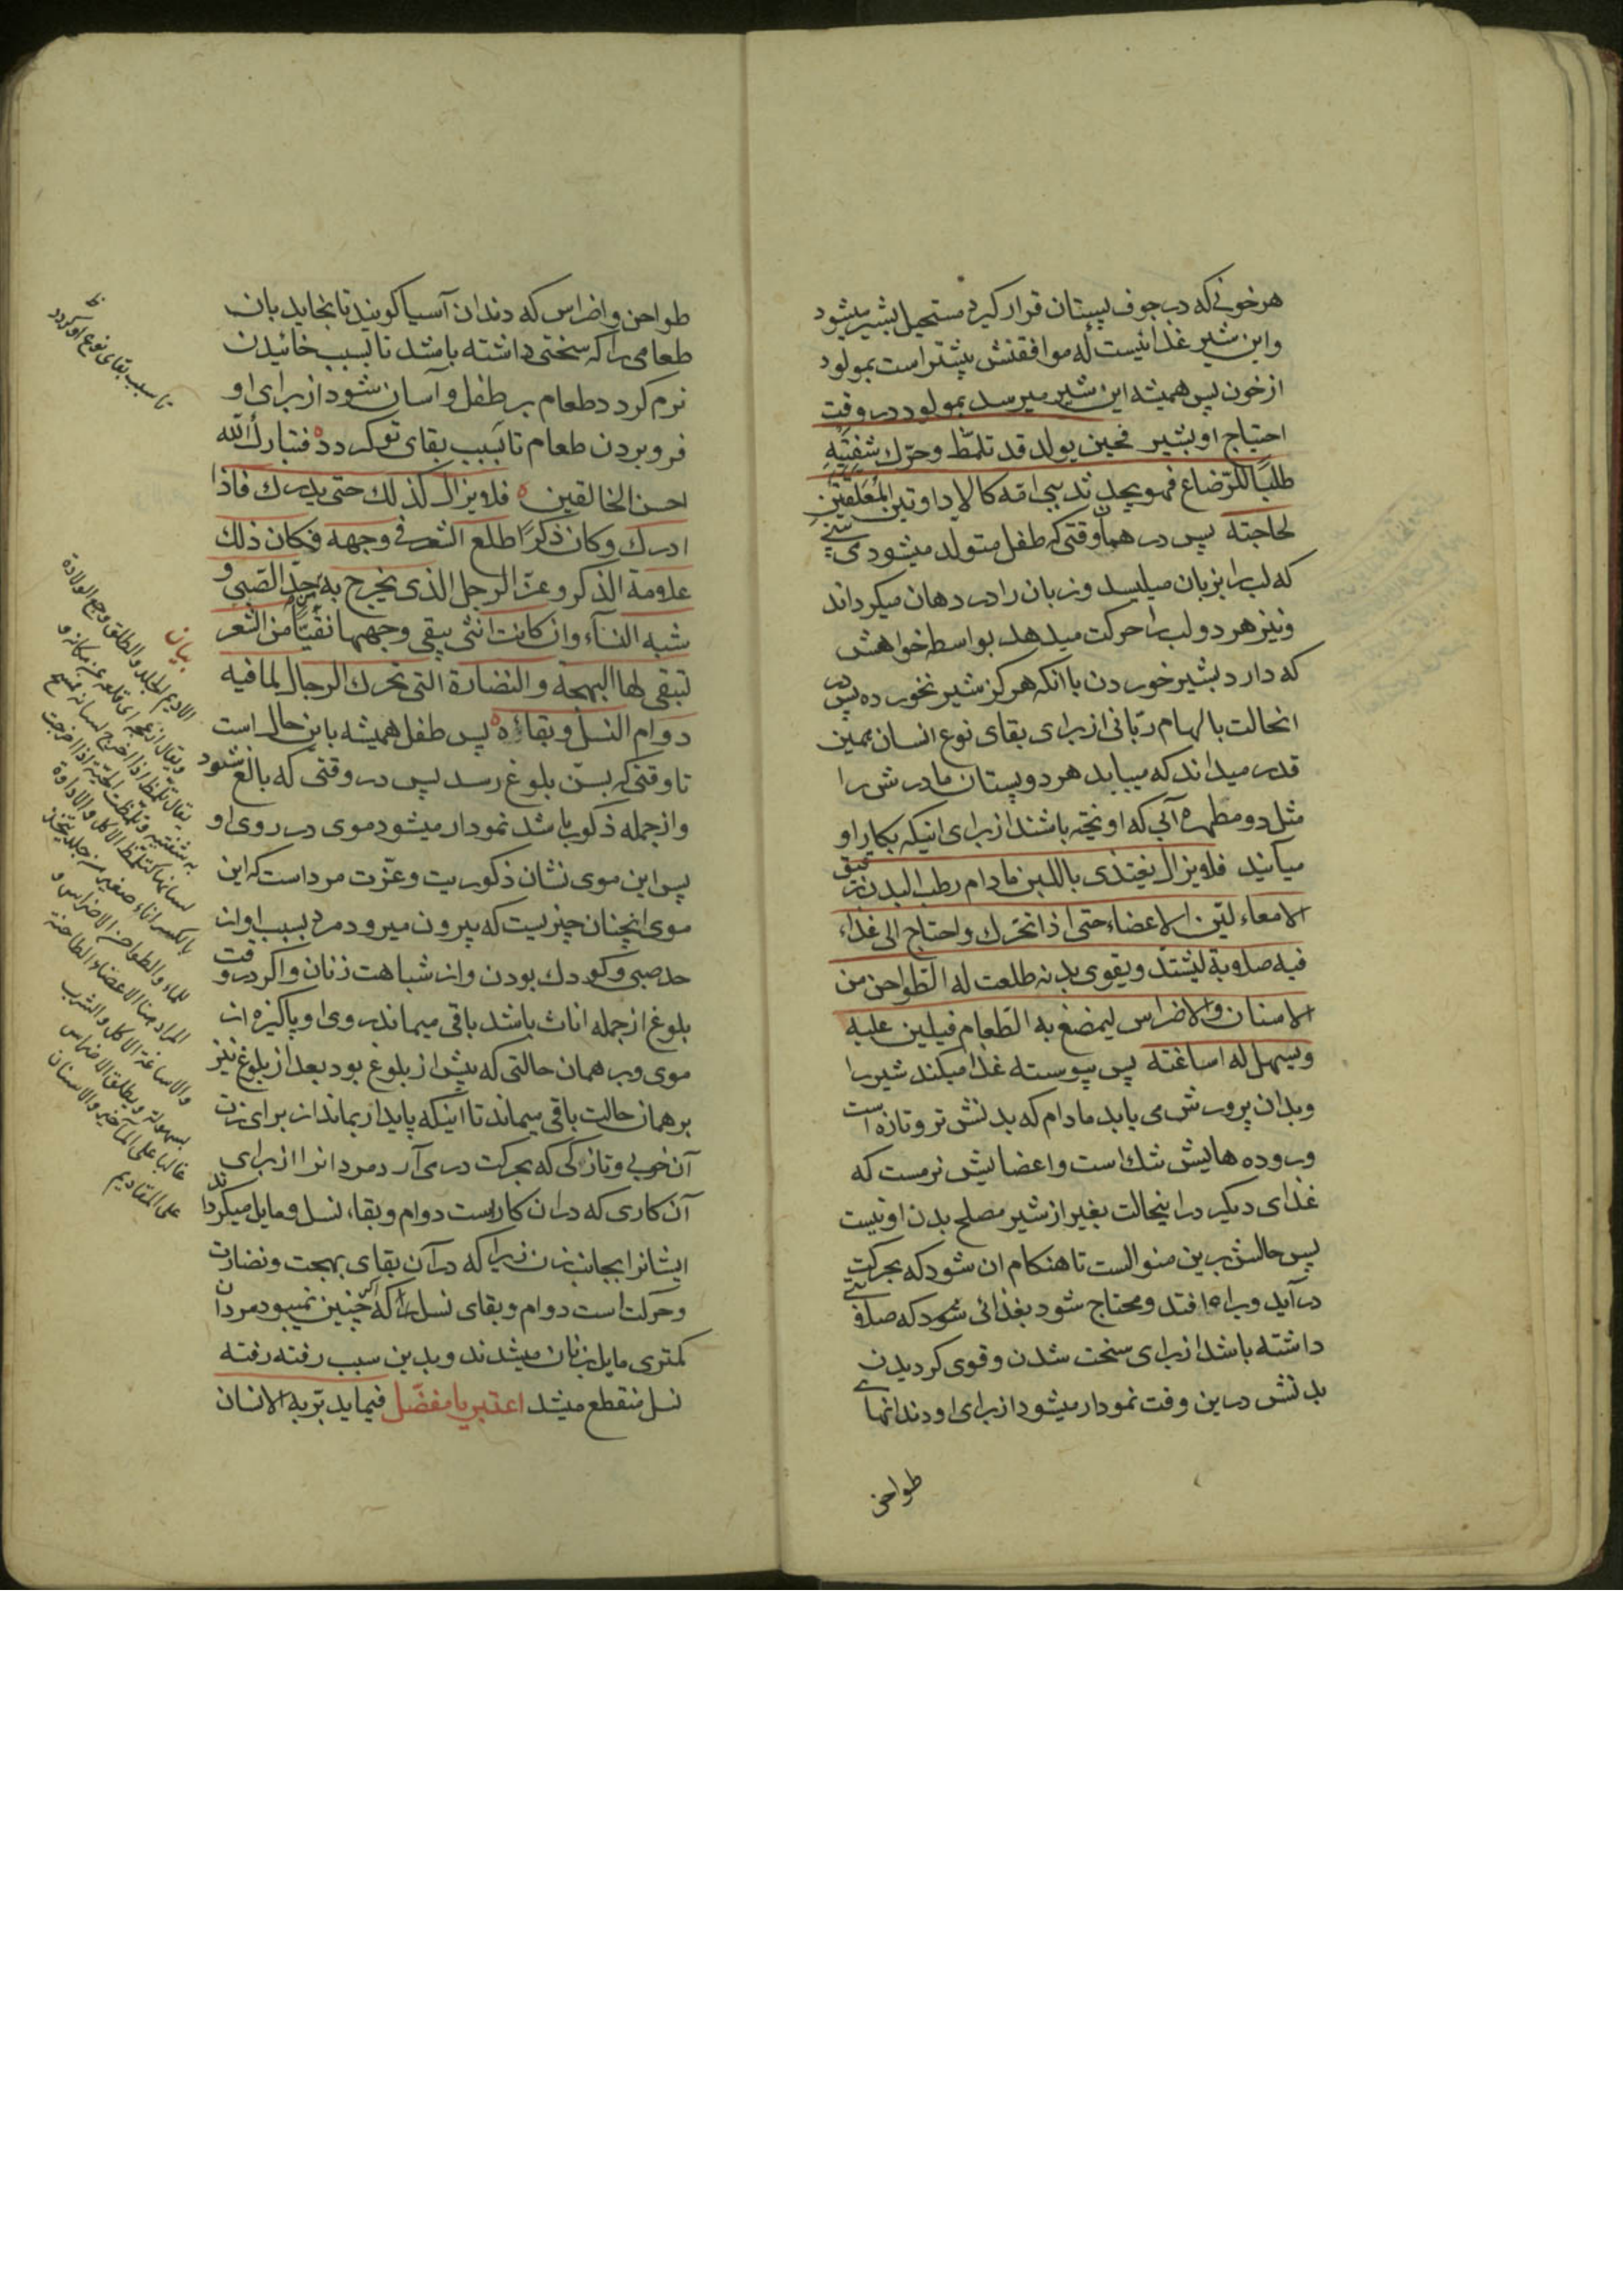 هر خونی که در جوف پستان قرار کیرد مستحیل بشیر میشود
واین شیر غذائیست له موافقتش بیشتر است بمولود
از خون پس همیشه این شیر میرسد بمولود در وقت
احتیاج او بشیر فحین یولد قد تلمّظ وحرّك شفتیه
طلبًا للرّضاع فهو یجد ثدیی امّه کالاداوتین المُعَلّقتین
لحاجته پس در همان وقتی که طفل متولد میشود می بینی
که لب را بزبان میلیسد وزبان را در دهان میکرداند
ونیز هر دو لب را حرکت میدهد بواسطه خواهش
که دارد بشیر خوردن با انکه هرکز شیر نخورده پس در
انحالت بالهام ربّانی از برای بقای نوع انسان همین
قدر میداند که مییابد هر دو پستان مادرش را
مثل دو مطهره آبی که اویخته باشند از برای اینکه بکار او
میآیند فلا یزال یغتذی باللبن مادام رطب البدن رقیق
الامعاء لیّن الاعضاء حتی اذا تحرّك واحتاج الی غذاء
فیه صلابة لیشتدّ ویقوی بدنه طلعت له الطّواحن من
الاسنان والاضراس لیمضغ به الطّعام فیلین علیه
ویسهل له اساغته پس پیوسته غذا میکند شیر را
وبدان پرورش می یابد مادام که بدنش تر وتازه است
وروده هایش تنك است واعضایش نرمست که
غذای دیکر در اینحالت بغیر از شیر مصلح بدن او نیست
پس حالش برین منوالست تا هنکام ان شود که بحرکت
در آید وبراه افتد ومحتاج شود بغذائی که صلابتی
داشته باشد از برای سخت شدن وقوی کردیدن
بدنش درین وقت نمودار میشود از برای او دندانهای
طواحن
طواحن واضراس که دندان آسیا کویند تا بخاید بان
طعامی را که سختی داشته باشد تا بسبب خائیدن
نرم کردد طعام بر طفل وآسان شود از برای او
فرو بردن طعام تا بسبب بقای تو کردد فتبارك الله
احسن الخالقین فلا یزال کذلك حتی یدرك فاذا
ادرك وکان ذکرًا طلع الشعر فی وجهه فکان ذلك
علامة الذکر وعزّ الرجل الذی یخرج به من حدّ الصّبی و
شبه النسآء وان کانت انثی یبقی وجهها نقیًّا من الشعر
لتبقی لها البهجة والنضارة التی تحرك الرجال لما فیه
دوام النسل وبقاؤه پس طفل همیشه باین حال است
تا وقتی که بسنّ بلوغ رسد پس در وقتی که بالغ شود
واز جمله ذکور باشد نمودار میشود موی در روی او
پس این موی نشان ذکوریت وعزّت مرد است که این
موی انچنان چیزیست که بیرون میرود مرد بسبب او از
حد صبی وکودك بودن واز شباهت زنان واکر در وقت
بلوغ از جمله اناث باشد باقی میماند روی او پاکیزه از
موی وبر همان حالتی که پیش از بلوغ بود بعد از بلوغ نیز
بر همان حالت باقی میماند تا اینکه پایدار بماند از برای زن
آن خوبی وتازکی که بحرکت در می آرد مردانرا از برای
آن کاری که در ان کار است دوام وبقاء نسل ومایل میکرداند
ایشانرا بجانب زن زیرا که در آن بقای بهجت ونضارت
وحرکت است دوام وبقای نسل را که اکر چنین نمیبود مردان
کمتری مایل بزنان میشدند وبدین سبب رفته رفته
نسل منقطع میشد اعتبر یا مفضّل فیما یدبّر به الانسان
تا سبب بقای نوع او کردد
بیان
الادیم الجلد والطلق وجع الولادة
ویقال ازعجه ای قلعه عن مکانه و
یقال تلمّظ اذا اخرج لسانه فمسح
به شفتیه وتلمّظت الحیّة اذا اخرجت
لسانها کتلمّظ الاکل والاداوة
بالکسر اناء صغیر من جلد یتخذ
للماء والطواحن الاضراس و
والاساغة الاکل والشرب
بسهولة ویطلق الاضراس
غالبا علی المآخیر والاسنان
علی المقادیم